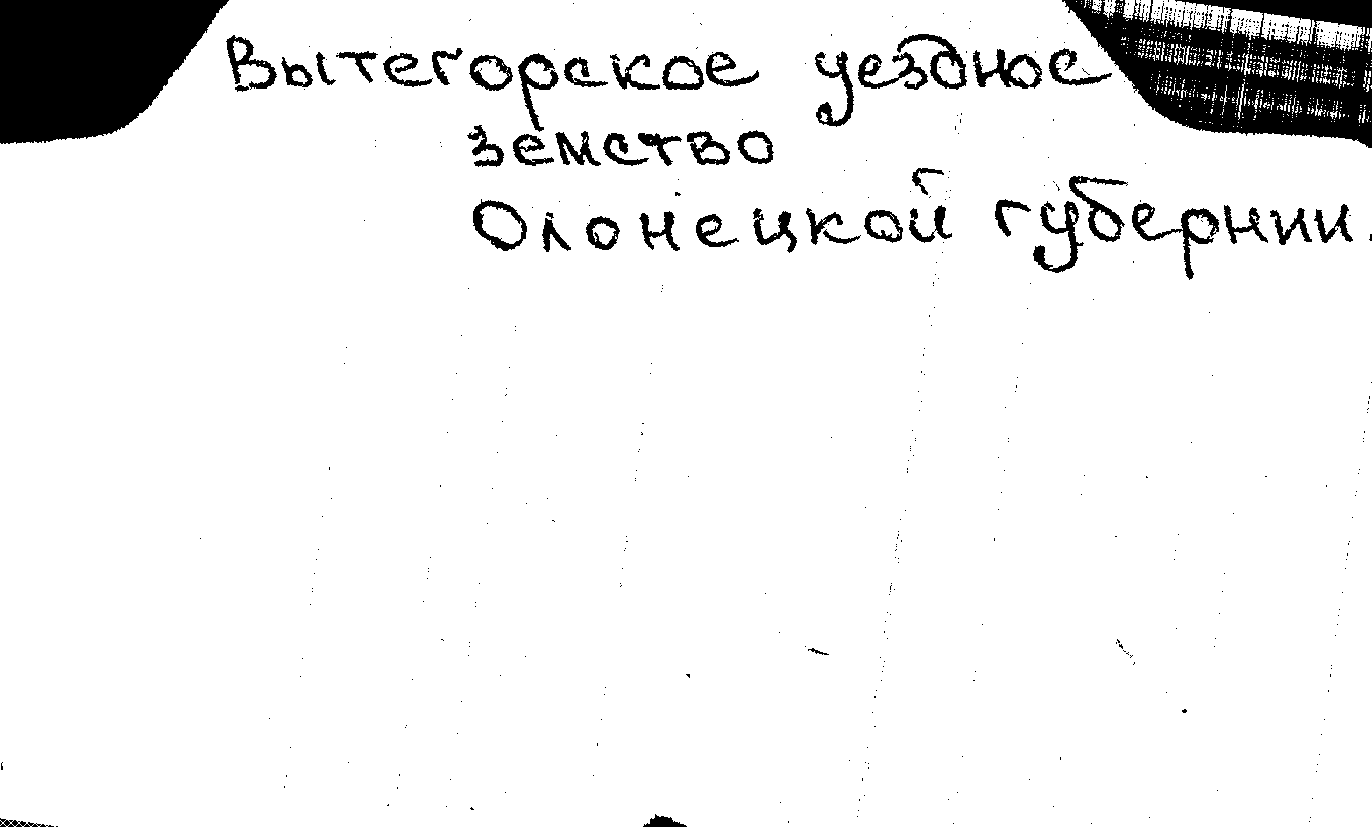 Вытегорское уездное
земство
Олонецкой губернии.